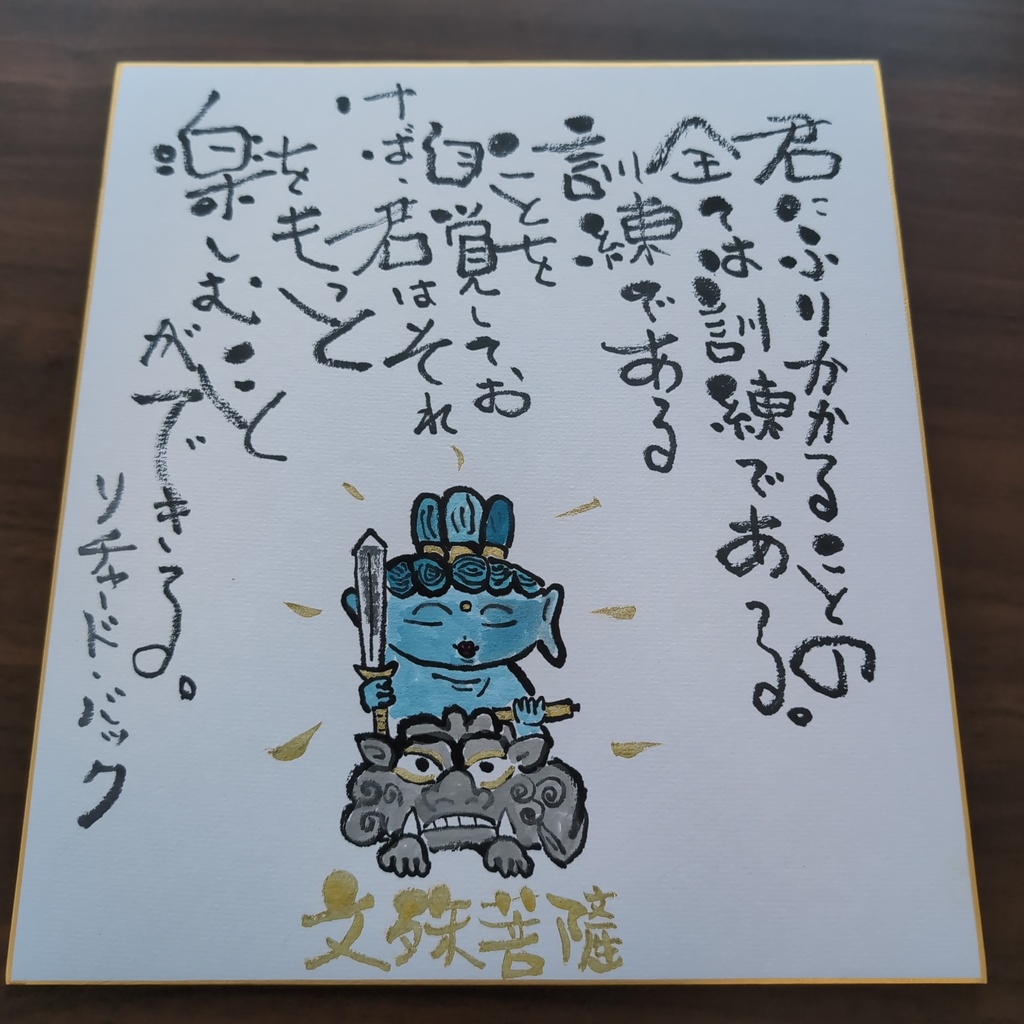 君にふりかかることの
全ては訓練である。
訓練である
ことを
自覚してお
けば、君はそれ
をもっと
楽しむこと
ができる。
リチャード・バック
文殊菩薩